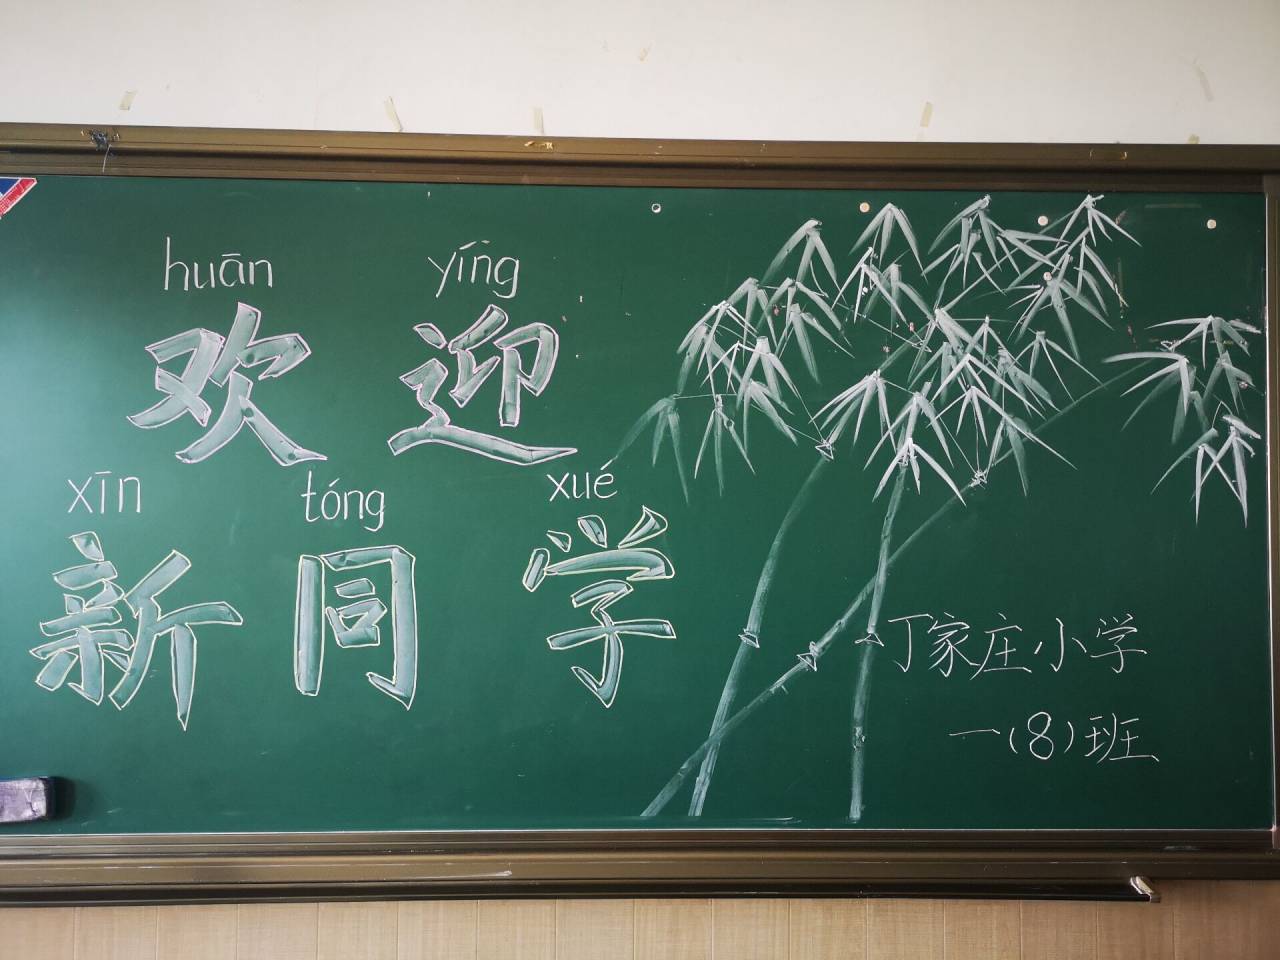 huān yíng
欢迎
xīn tóng xué
新同学
丁家庄小学
一(8)班